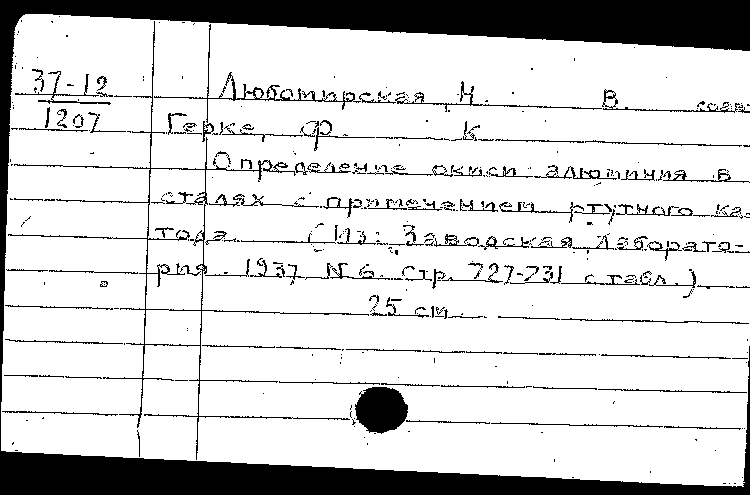 37-12
1207
Любомирская Н. В. соавт
Герке, Ф. К
Определение окиси алюминия в
сталях с примечением ртутного ка-
тода. (Из: Заводская лаборато-
рия. 1937 N 6. Стр. 727-731 с табл.).
25 см.